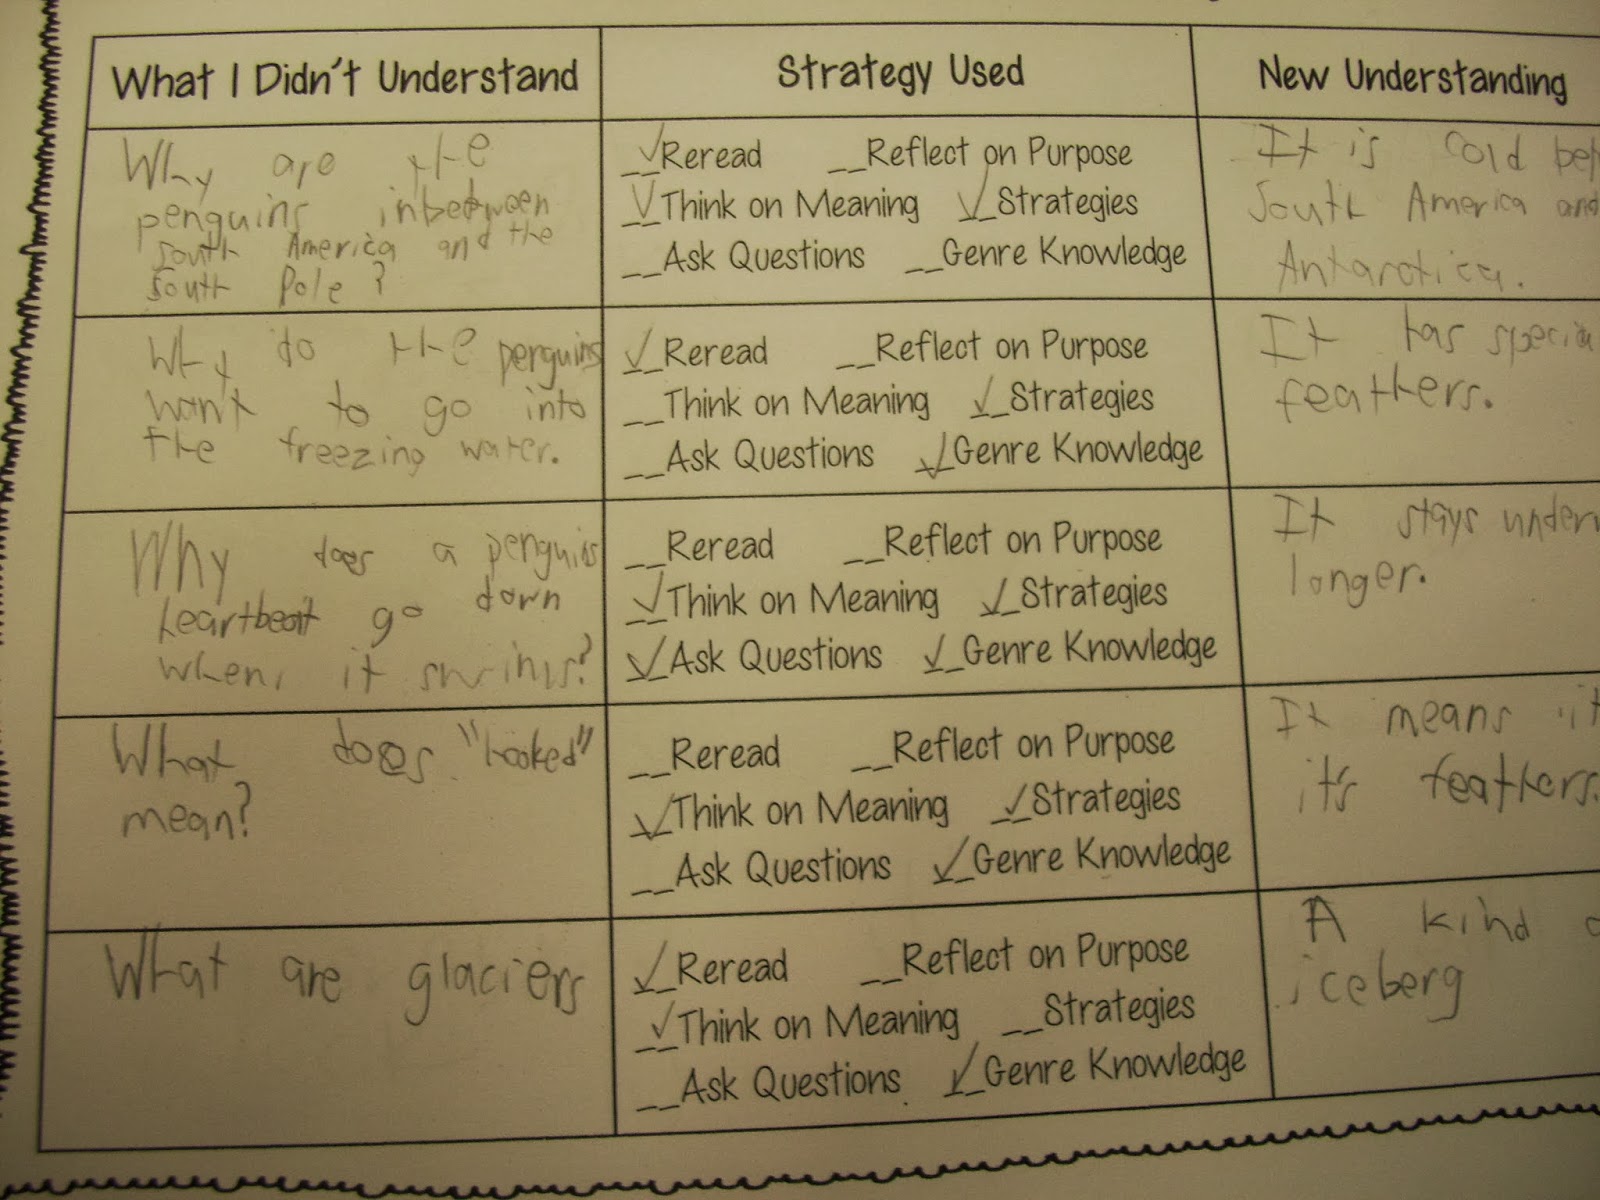 What I Didn't Understand
Strategy Used
New Understanding
Why are the
penguins inbetween
South America and the
South Pole?
✓Reread __Reflect on Purpose
✓Think on Meaning ✓Strategies
__Ask Questions __Genre Knowledge
It is cold
South America and
Antarctica.
Why do the penguins
want to go into
the freezing water.
✓Reread __Reflect on Purpose
__Think on Meaning ✓Strategies
__Ask Questions ✓Genre Knowledge
It has
feathers.
Why does a penguins
heartbeat go down
when it swims?
__Reread __Reflect on Purpose
✓Think on Meaning ✓Strategies
✓Ask Questions ✓Genre Knowledge
It stays
longer.
What does "hooked"
mean?
__Reread __Reflect on Purpose
✓Think on Meaning ✓Strategies
__Ask Questions ✓Genre Knowledge
It means
it's feathers.
What are glaciers
✓Reread __Reflect on Purpose
✓Think on Meaning __Strategies
__Ask Questions ✓Genre Knowledge
A kind
iceberg